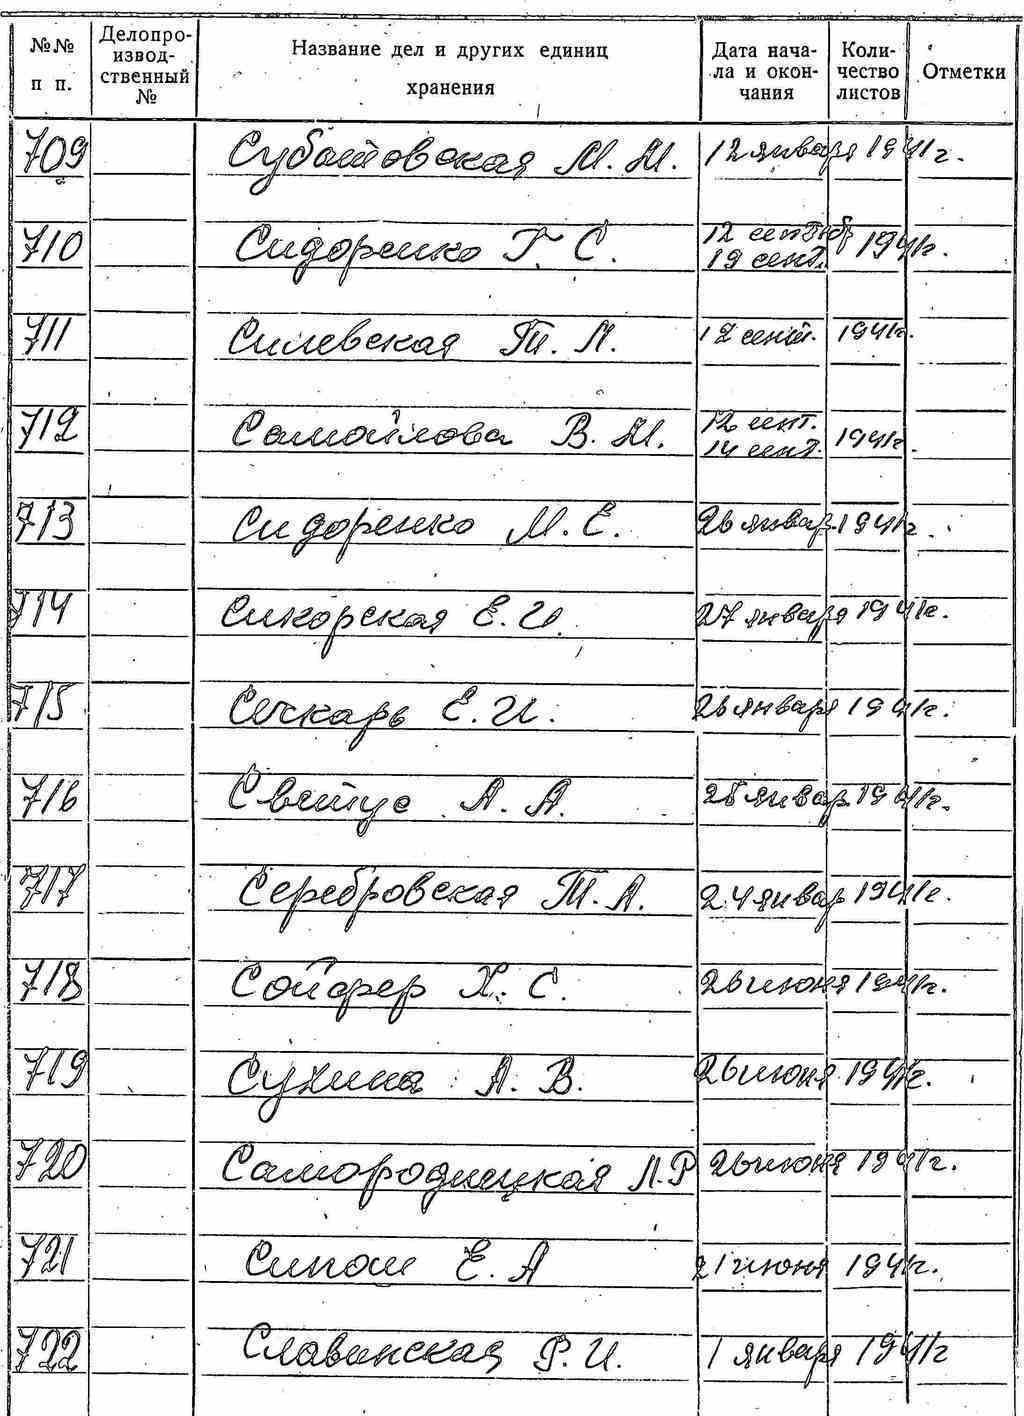 №№ п п. Делопроизводственный № Название дел и других единиц хранения Дата начала и окончания Количество листов Отметки
709 Субботовская М. М. 12 января 1941г.
710 Сидоренко Г. С. 12 сентябр 19 сент. 1941г.
711 Силевская Т. Л. 12 сент. 1941г.
712 Самойлова В. М. 12 сент. 14 сент. 1941г.
713 Сидоренко М. Е. 26 январ. 1941г.
714 Сикорская Е. И. 27 января 1941г.
715 Сечкарь Е. И. 26 января 1941г.
716 А. А. январ. 1941г.
717 Серебровская Т. А. 24 январ 1941г.
718 Сойфер Х. С. 26 июня 1941г.
719 Сухина А. В. 26 июня 1941г.
720 Самородницкая Л. Р 26 июня 1941г.
721 Е. А 21 июня 1941г.
722 Славинская Р. И. 1 января 1941г